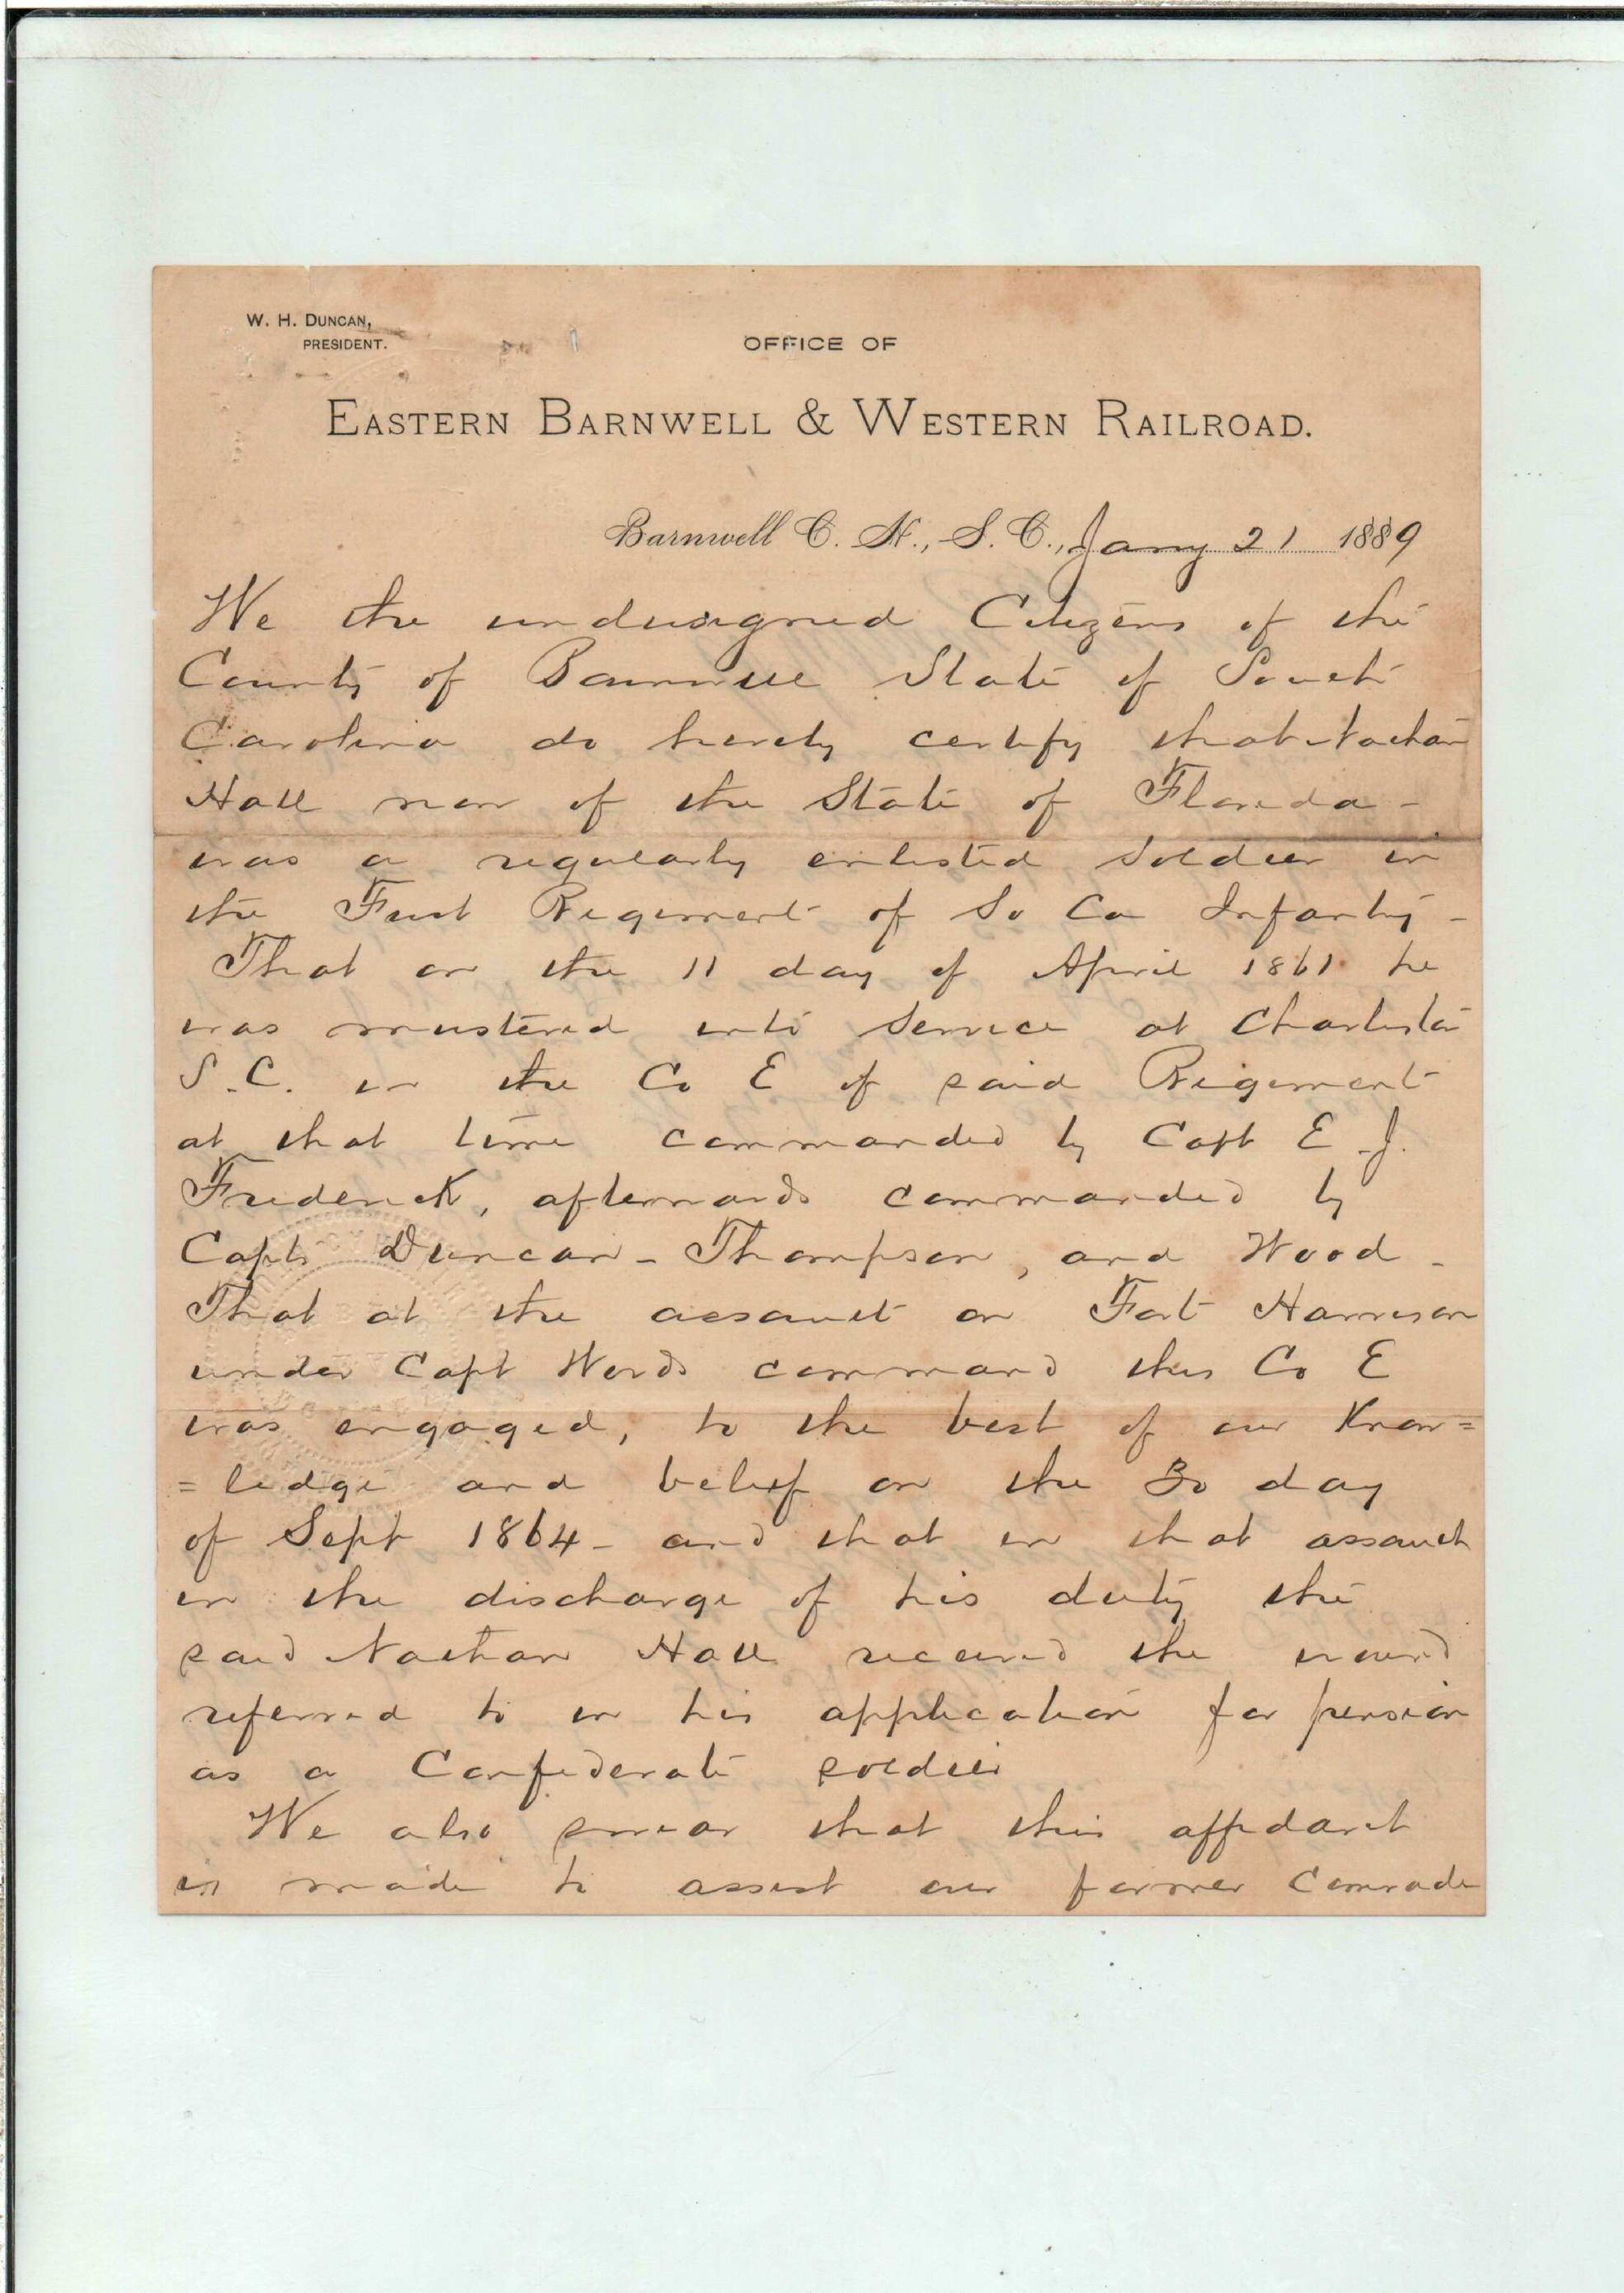 W. H. DUNCAN,
PRESIDENT.
OFFICE OF
EASTERN BARNWELL & WESTERN RAILROAD.
Barnwell C. H., S. C., Jany 21 1889
We the undersigned Citizens of the
County of Barnwell State of South
Carolina do hereby certify that Nathan
Hall now of the State of Florida -
was a regularly enlisted soldier in
the First Regiment of So Ca Infantry -
That on the 11 day of April 1861 he
was mustered into service at Charleston
S.C. in the Co E of said Regiment
at that time commanded by Capt E. J.
Frederick, afterwards commanded by
Capts Duncan - Thompson, and Wood -
That at the assault on Fort Harrison
under Capt Woods command this Co E
was engaged, to the best of our Know=
=ledge and belief on the 30 day
of Sept 1864 - and that in that assault
in the discharge of his duty the
said Nathan Hall received the wound
referred to in his application for pension
as a Confederate soldier
We also swear that this affidavit
is made to assist our former Comrade